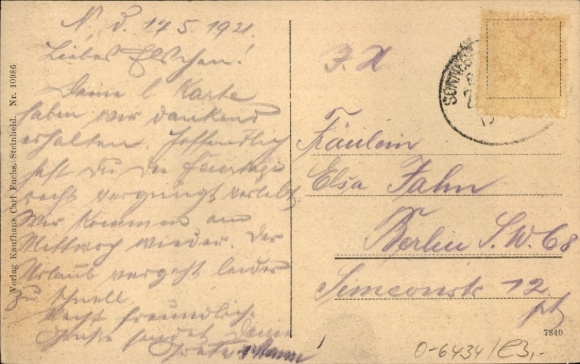 N. d. 17.5.1921.
Liebes Elschen!
Deine l. Karte
haben wir dankend
erhalten. Hoffentlich
hast du die Feiertage
recht vergnügt verlebt
Wir kommen am
Mittwoch wieder. Der
Urlaub vergeht leider
zu schnell
Recht freundliche
Grüße sendet
Verlag Kaufhaus Carl Fuchs, Steinheid. Nr. 10986
Fräulein
Elsa Jahn
Berlin S.W. 68
Simeonstr 12
7840
0-6434/E3,-